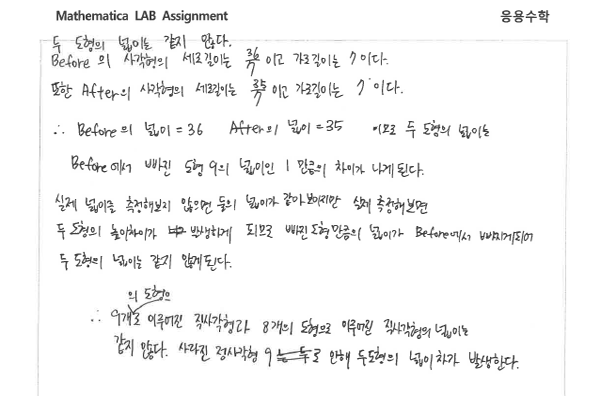 Mathematica LAB Assignment 응용수학
두 도형의 넓이는 같지 않다.
Before의 사각형의 세로길이는 36/7 이고 가로길이는 7 이다.
또한 After의 사각형의 세로길이는 35/7 이고 가로길이는 7 이다.
∴ Before의 넓이 = 36 After의 넓이 = 35 이므로 두 도형의 넓이는
Before에서 빠진 도형 9의 넓이인 1 만큼의 차이가 나게된다.
실제 넓이를 측정해보지 않으면 둘의 넓이가 같아보이지만 실제 측정해보면
두 도형의 높이차이가 발생하게 되므로 빠진 도형만큼의 넓이가 Before에서 빠지게되어
두 도형의 넓이는 같지 않게된다.
의 도형으
∴ 9개로 이루어진 직사각형과 8개의 도형으로 이루어진 직사각형의 넓이는
같지 않다. 사라진 정사각형 9로 인해 두도형의 넓이차가 발생한다.